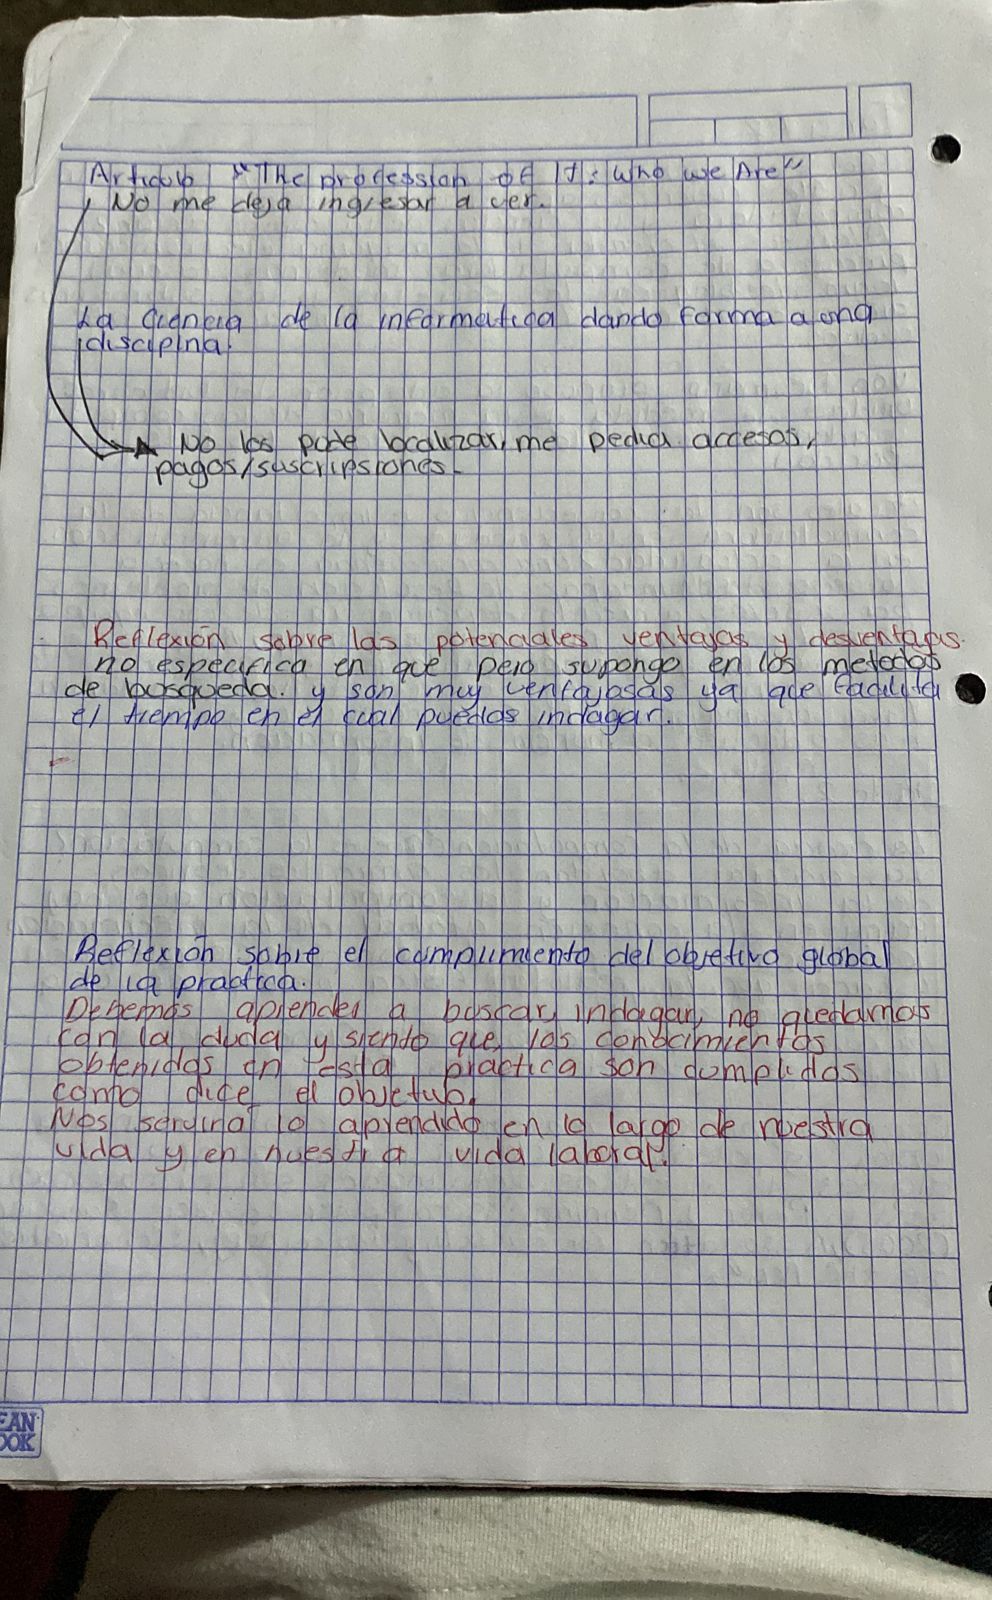 Articulo "The profession of IT: Who we Are"
No me deja ingresar a ver.
La ciencia de la informatica dando forma a una
disciplina.
No los pude localizar, me pedia accesos,
pagos/suscripsiones.
Reflexión sobre las potenciales ventajas y desventajas.
no especifica en que pero supongo en los metodos
de busqueda. y son muy ventajosas ya que facilita
el tiempo en el cual puedas indagar.
Reflexión sobre el cumplimiento del objetivo global
de la practica.
Debemos aprender a buscar, indagar, no quedarnos
con la duda y siento que los conocimientos
obtenidos en esta practica son cumplidos
como dice el objetivo.
Nos servira lo aprendido en lo largo de nuestra
vida y en nuestra vida laboral.
EAN
OOK